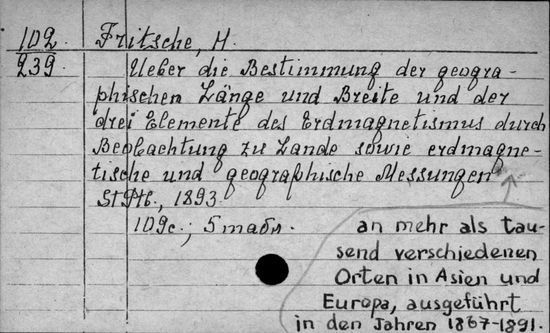 102. Fritsche, H.
239. Ueber die Bestimmung der geogra-
phischen Länge und Breite und der
drei Elemente des Erdmagnetismus durch
Beobachtung zu Lande sowie erdmagne-
tische und geographische Messungen
St Ptb., 1893.
109c.; 5 табл.
an mehr als tau-
send verschiedenen
Orten in Asien und
Europa, ausgeführt
in den Jahren 1867-1891.